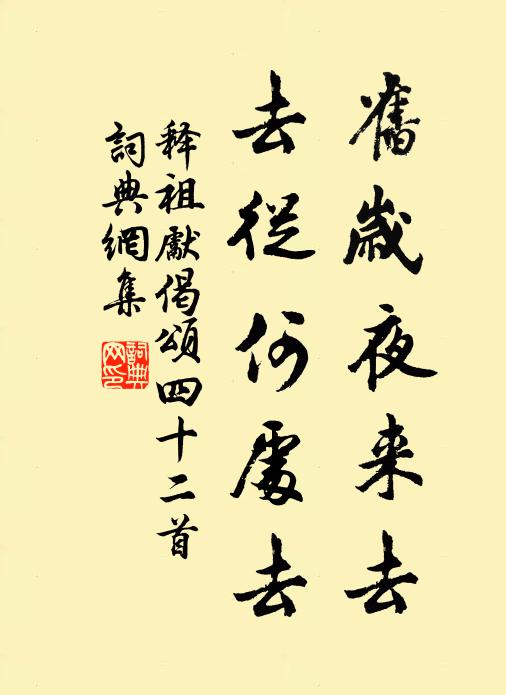 舊歲夜来去
去從何處去
释祖獻偈頌四十二首
詞典網集
詞典網印